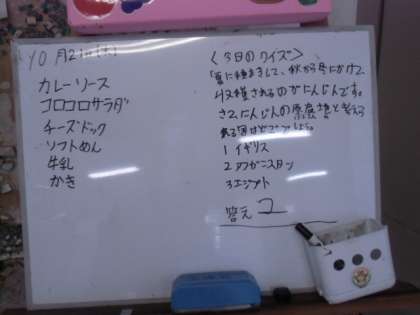 10月21日(木)
カレーソース
コロコロサラダ
チーズドック
ソフトめん
牛乳
かき
〈今日のクイズ〉
夏に種まきして、秋から冬にかけて
収穫されるのがにんじんです。
さて、にんじんの原産地と考えら
れる国はどこでしょう。
1 イギリス
2 アフガニスタン
3 エジプト
答え 2